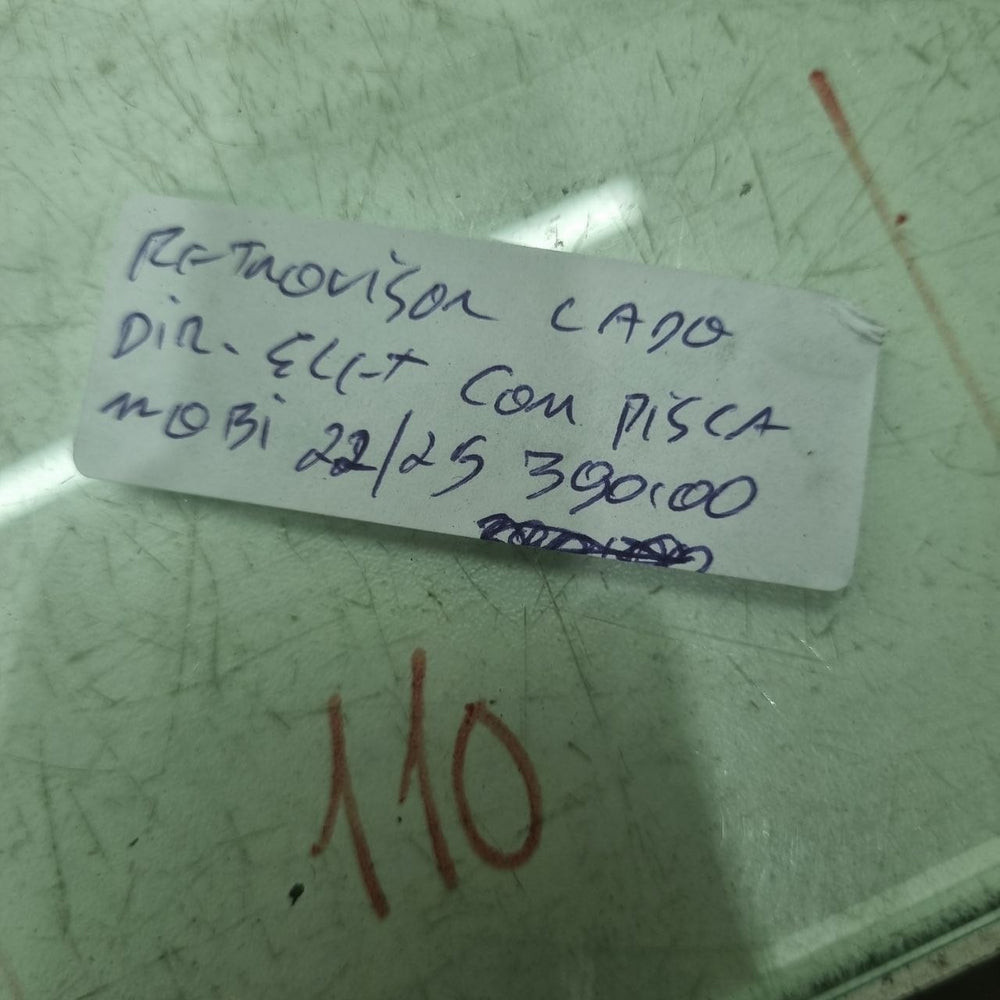 RETROVISOR LADO
DIR. ELET COM PISCA
MOBI 22/25 390,00
110